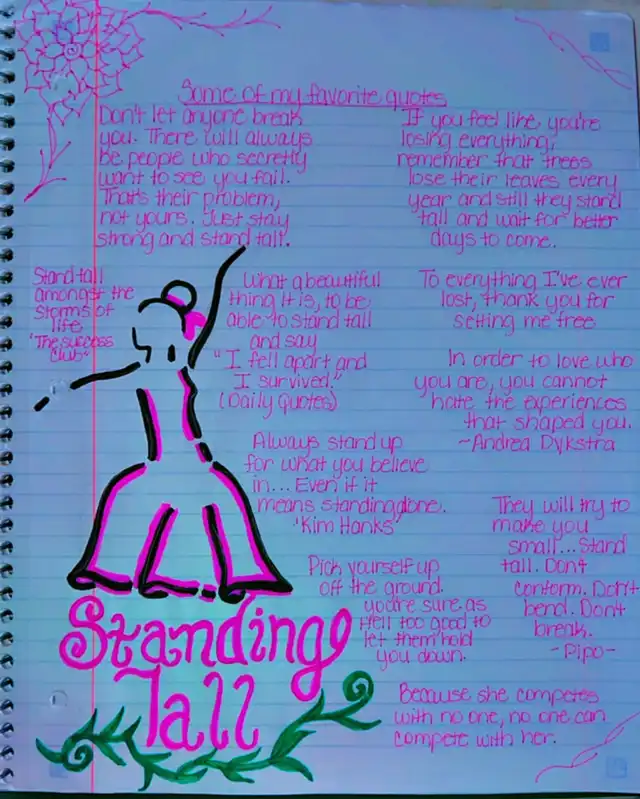 Some of my favorite quotes
Don't let anyone break
you. There will always
be people who secretly
want to see you fail.
That's their problem,
not yours. Just stay
strong and stand tall.
If you feel like you're
losing everything,
remember that trees
lose their leaves every
year and still they stand
tall and wait for better
days to come.
Stand tall
amongst the
storms of
life
"The success
Club"
What a beautiful
thing it is, to be
able to stand tall
and say
"I fell apart and
I survived."
(Daily Quotes)
To everything I've ever
lost, thank you for
setting me free
In order to love who
you are, you cannot
hate the experiences
that shaped you.
~Andrea Dykstra
Always stand up
for what you believe
in... Even if it
means standing alone.
"Kim Hanks"
They will try to
make you
small... Stand
tall. Don't
conform. Don't
bend. Don't
break.
-Pipo-
Pick yourself up
off the ground.
you're sure as
Hell too good to
let them hold
you down.
Because she competes
with no one, no one can
compete with her.
Standing
Tall